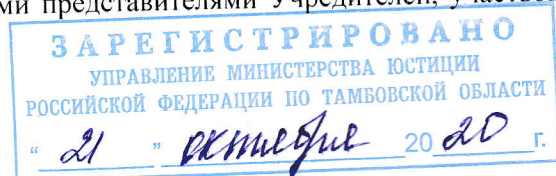 ми представителями Учредителей, участвов
ЗАРЕГИСТРИРОВАНО
УПРАВЛЕНИЕ МИНИСТЕРСТВА ЮСТИЦИИ
РОССИЙСКОЙ ФЕДЕРАЦИИ ПО ТАМБОВСКОЙ ОБЛАСТИ
" 21 " октября 20 20 г.